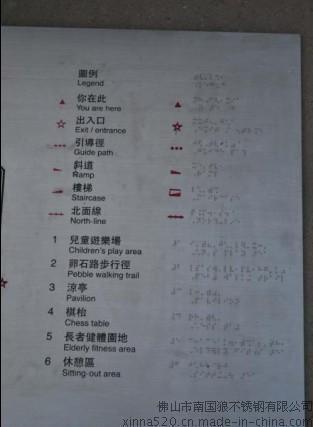 圖例
Legend
你在此
You are here
出入口
Exit / entrance
引導徑
Guide path
斜道
Ramp
樓梯
Staircase
北面線
North-line
1 兒童遊樂場
Children's play area
2 卵石路步行徑
Pebble walking trail
3 涼亭
Pavilion
4 棋枱
Chess table
5 長者健體園地
Elderly fitness area
6 休憩區
Sitting-out area
佛山市南国狼不锈钢有限公司
xinna520.cn.made-in-china.com